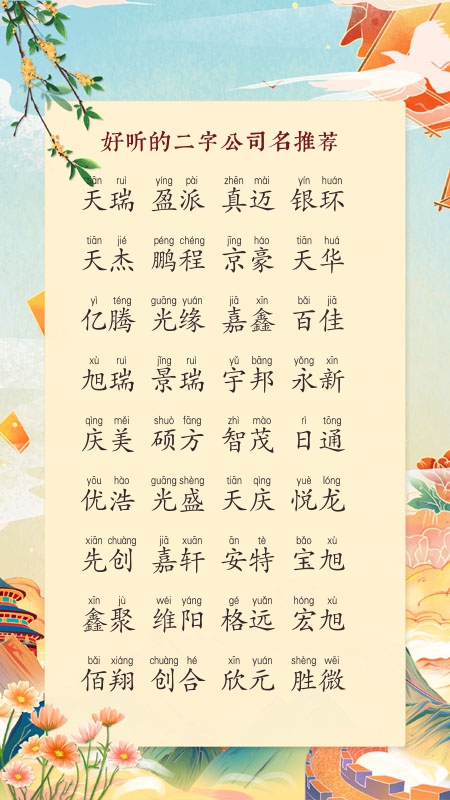 好听的二字公司名推荐
tiān ruì yíng pài zhēn mài yín huán
天瑞 盈派 真迈 银环
tiān jié péng chéng jīng háo tiān huá
天杰 鹏程 京豪 天华
yì téng guāng yuán jiā xīn bǎi jiā
亿腾 光缘 嘉鑫 百佳
xù ruì jǐng ruì yǔ bāng yǒng xīn
旭瑞 景瑞 宇邦 永新
qìng měi shuò fāng zhì mào rì tōng
庆美 硕方 智茂 日通
yōu hào guāng shèng tiān qìng yuè lóng
优浩 光盛 天庆 悦龙
xiān chuàng jiā xuān ān tè bǎo xù
先创 嘉轩 安特 宝旭
xīn jù wéi yáng gé yuǎn hóng xù
鑫聚 维阳 格远 宏旭
bǎi xiáng chuàng hé xīn yuán shèng wēi
佰翔 创合 欣元 胜微